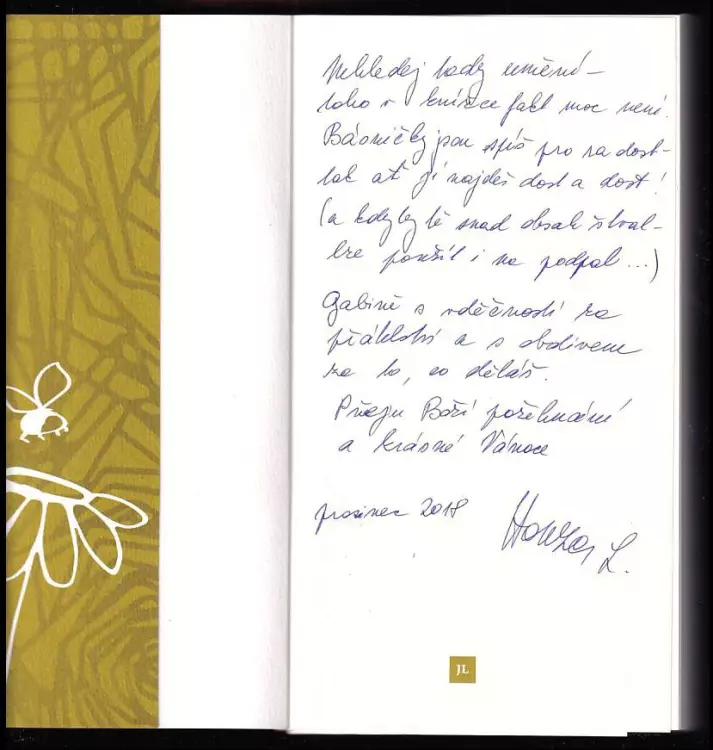 Nehledej tady umění –
toho v knížce fakt moc není.
Básničky jsou spíš pro radost –
tak ať jí najdeš dost a dost!
(a kdyby tě snad obsah štval –
lze použít i na podpal ...)
Gabině s vděčností za
přátelství a s obdivem
za to, co děláš.
Přeju Boží požehnání
a krásné Vánoce
prosinec 2018
Honza L.
JL